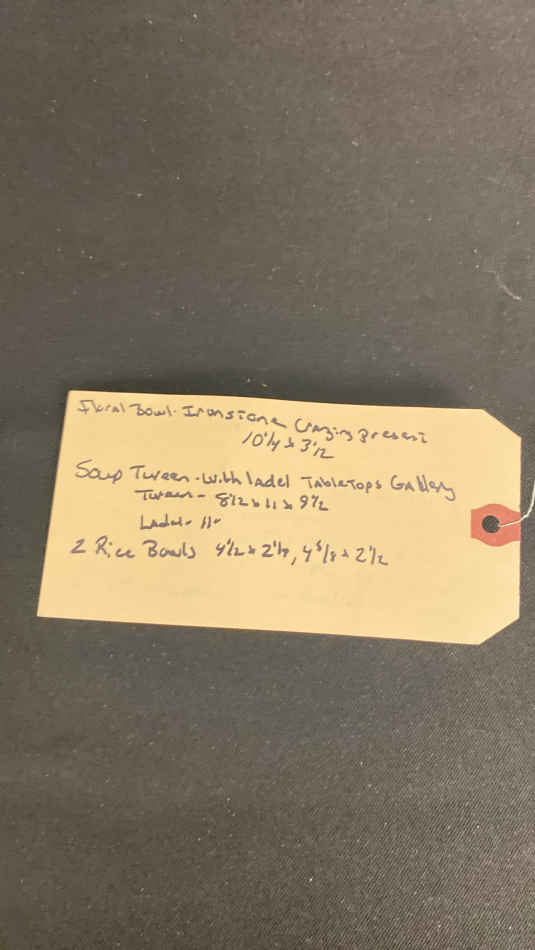 Floral Bowl - Ironstone Crazing Present
10 1/4 x 3 1/2
Soup Tureen - with ladel TableTops Gallery
Tureen - 8 1/2 x 11 x 9 1/2
Ladel - 11"
2 Rice Bowls 4 1/2 x 2 1/8, 4 5/8 x 2 1/2